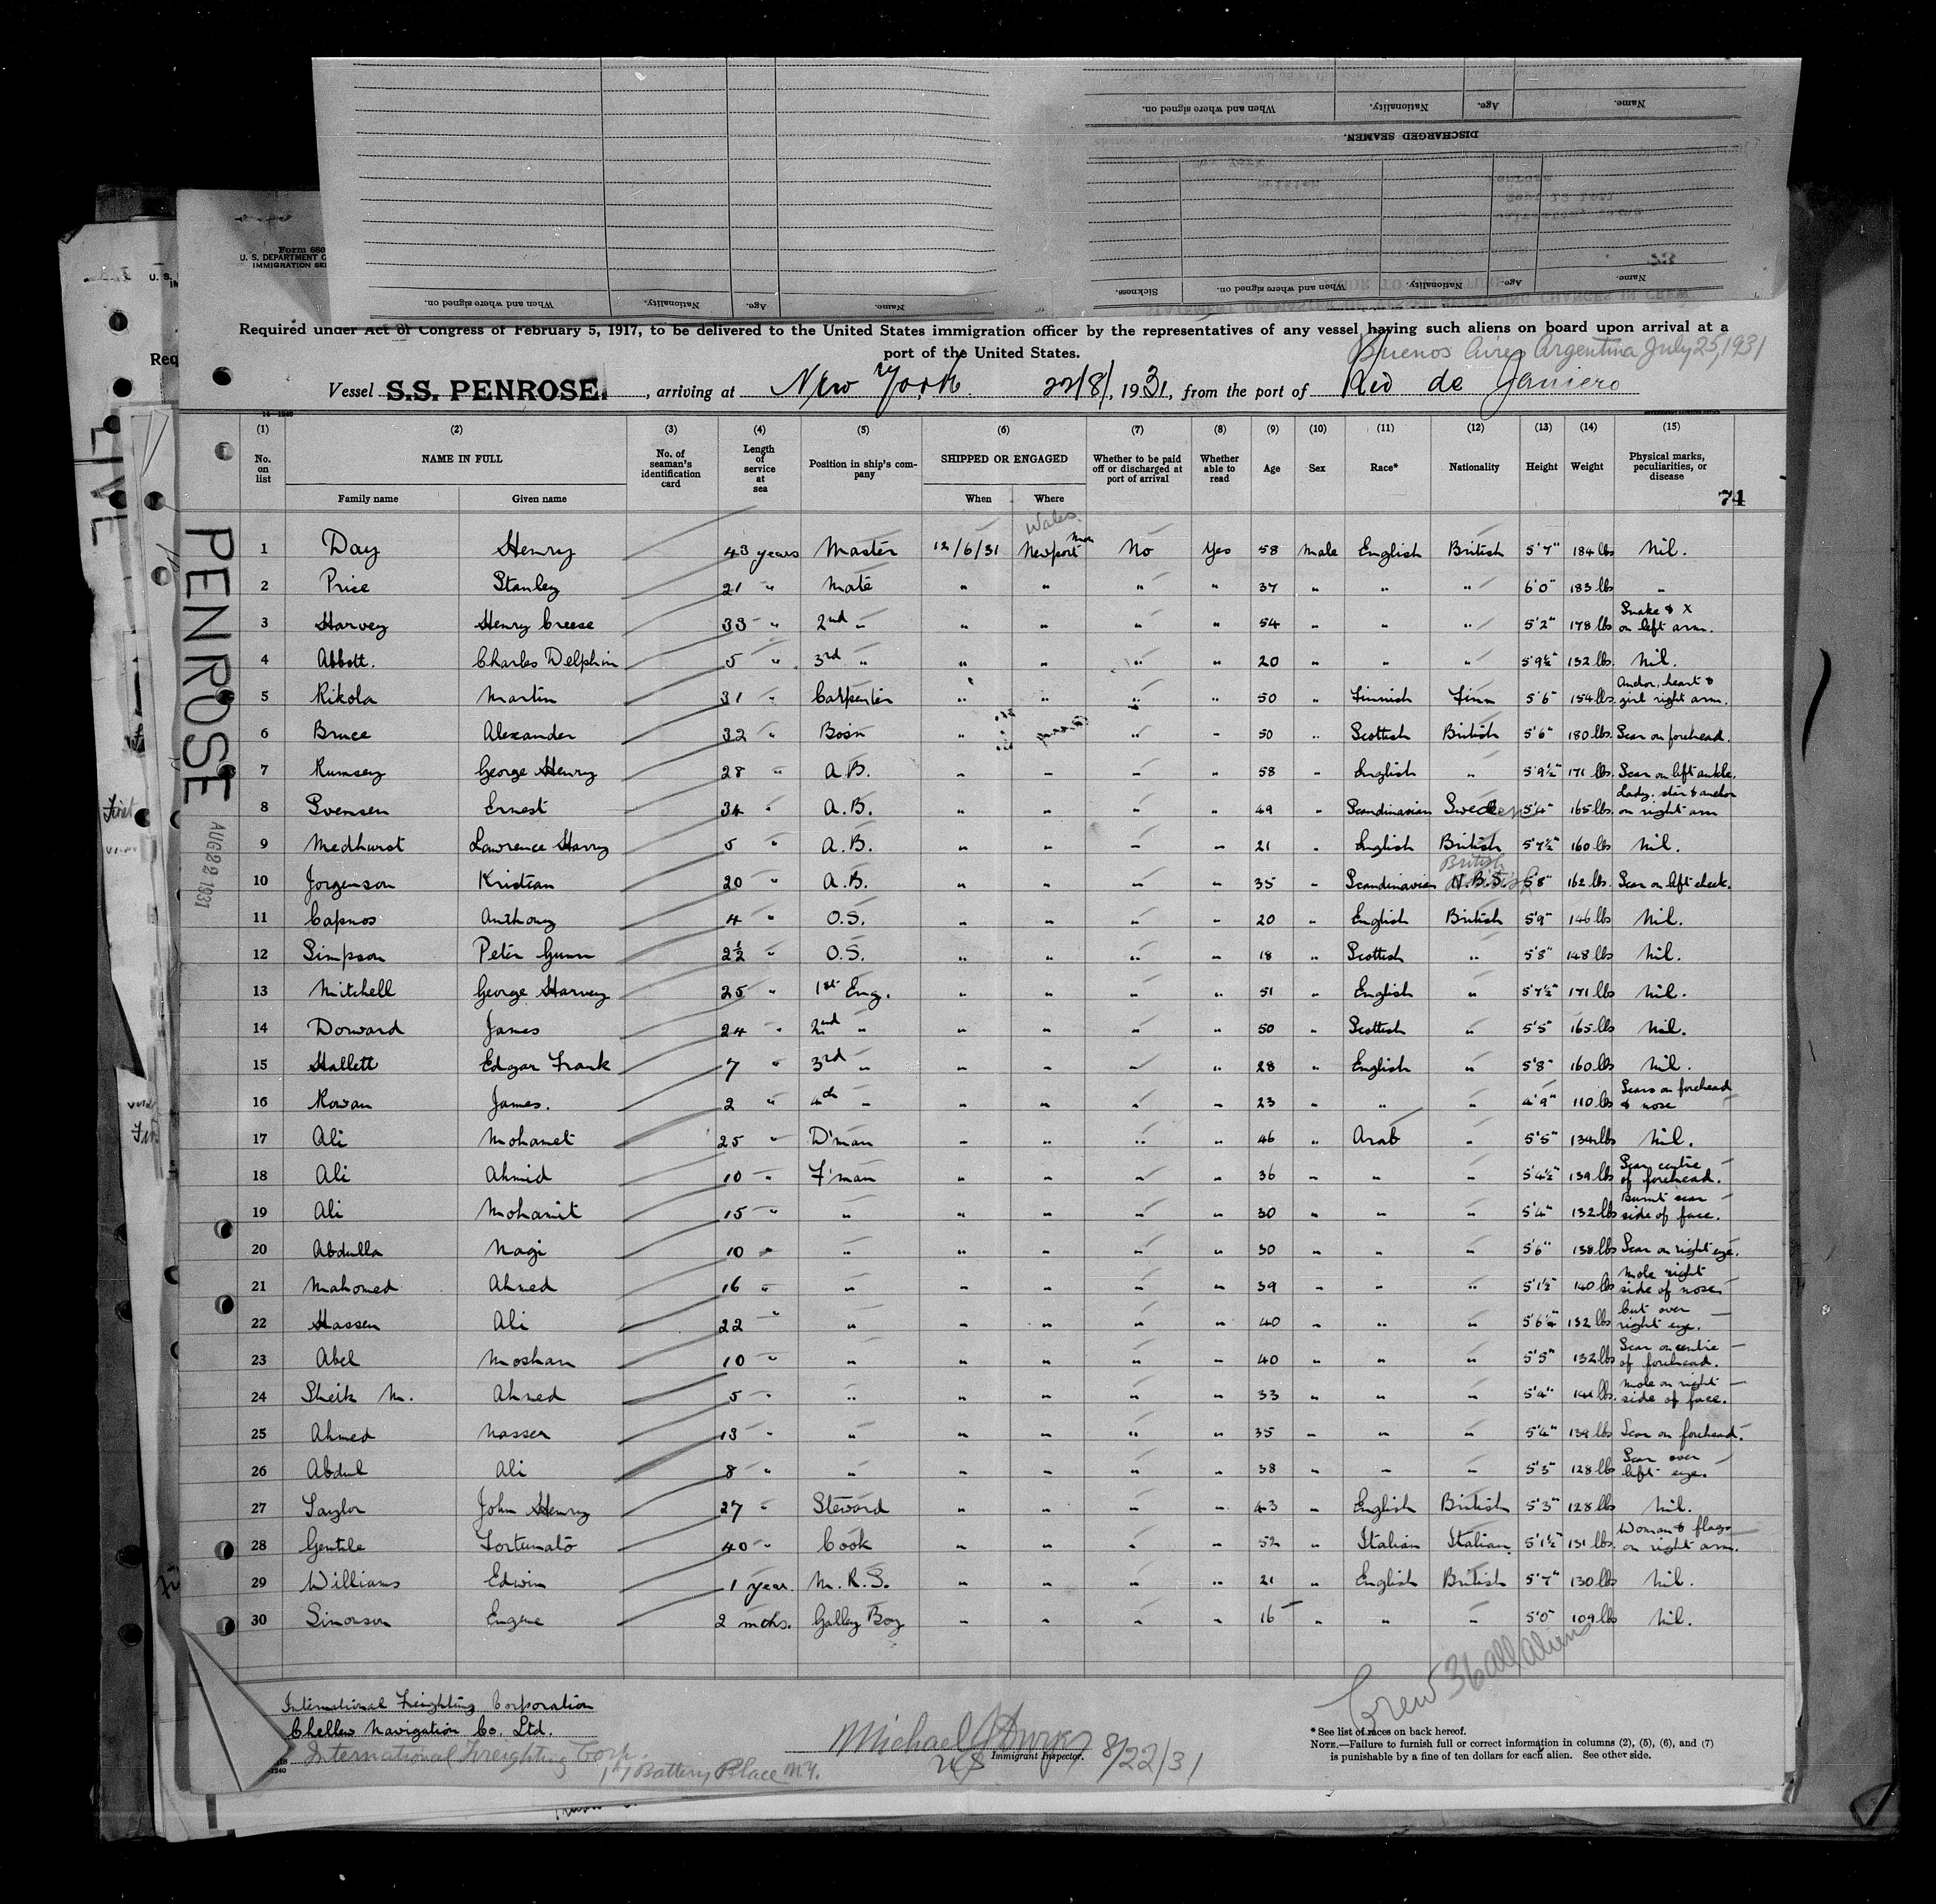 Form 680
U. S. DEPARTMENT O
IMMIGRATION SE
When and where signed on.
Nationality.
Age.
Name.
DISCHARGED SEAMEN.
Sickness.
When and where signed on.
Nationality.
Age.
Name.
When and where signed on.
Nationality.
Age.
Name.
Required under Act of Congress of February 5, 1917, to be delivered to the United States immigration officer by the representatives of any vessel having such aliens on board upon arrival at a
port of the United States.
Buenos Aires Argentina July 25, 1931
Vessel S.S. PENROSE., arriving at New York. 22/8/, 1931, from the port of Rio de Janiero
14-1240
(1) (2) (3) (4) (5) (6) (7) (8) (9) (10) (11) (12) (13) (14) (15)
No. on list
NAME IN FULL
Family name
Given name
No. of seaman's identification card
Length of service at sea
Position in ship's company
SHIPPED OR ENGAGED
When
Where
Whether to be paid off or discharged at port of arrival
Whether able to read
Age
Sex
Race*
Nationality
Height
Weight
Physical marks, peculiarities, or disease
74
Wales.
1 Day Henry 43 years Master 12/6/31 Newport Mon No Yes 58 Male English British 5'7" 184 lbs Nil.
2 Price Stanley 21 " Mate " " " " 37 " " " 6'0" 183 lbs "
3 Harvey Henry Creese 33 " 2nd " " " " " 54 " " " 5'2" 178 lbs Snake & X on left arm.
4 Abbott. Charles Delphin 5 " 3rd " " " " " 20 " " " 5'9½" 132 lbs. Nil.
5 Rikola Martin 31 " Carpenter " " " " 50 " Finnish Finn 5'6" 154 lbs. Anchor, heart & girl right arm.
6 Bruce Alexander 32 " Bosn " " " 50 " Scottish British 5'6" 180 lbs. Scar on forehead.
7 Rumsey George Henry 28 " A.B. " " " " 58 " English " 5'9½" 171 lbs. Scar on left ankle.
8 Svensen Ernest 34 " A.B. " " " " 49 " Scandinavian Sweden 5'4" 165 lbs. Lady, star & anchor on right arm
9 Medhurst Lawrence Harry 5 " A.B. " " " " 21 " English British 5'7½" 160 lbs Nil.
British
10 Jorgenson Kristian 20 " A.B. " " " " 35 " Scandinavian N.B.S. 5'8" 162 lbs. Scar on left cheek.
11 Capnos Anthony 4 " O.S. " " " " 20 " English British 5'9" 146 lbs Nil.
12 Simpson Peter Gunn 2½ " O.S. " " " " 18 " Scottish " 5'8" 148 lbs Nil.
13 Mitchell George Harvey 25 " 1st Eng. " " " " 51 " English " 5'7½" 171 lbs Nil.
14 Dorward James 24 " 2nd " " " " " 50 " Scottish " 5'5" 165 lbs Nil.
15 Hallett Edgar Frank 7 " 3rd " " " " " 28 " English " 5'8" 160 lbs Nil.
16 Rowan James. 2 " 4th " " " " " 23 " " " 4'9" 110 lbs Scars on forehead & nose
17 Ali Mohamet 25 " D'man " " " " 46 " Arab " 5'5" 134 lbs Nil.
18 Ali Ahmid 10 " F'man " " " " 36 " " " 5'4½" 139 lbs Scar centre of forehead.
19 Ali Mohamit 15 " " " " " " 30 " " " 5'4" 132 lbs Burnt scar side of face.
20 Abdulla Nagi 10 " " " " " " 30 " " " 5'6" 138 lbs Scar on right eye.
21 Mahomed Ahmed 16 " " " " " " 39 " " " 5'1½" 140 lbs Mole right side of nose
22 Hassen Ali 22 " " " " " " 40 " " " 5'6½" 132 lbs Cut over right eye.
23 Abel Moshan 10 " " " " " " 40 " " " 5'5" 132 lbs Scar on centre of forehead.
24 Sheik M. Ahmed 5 " " " " " " 33 " " " 5'4" 141 lbs. Mole on right side of face.
25 Ahmed Nasser 13 " " " " " " 35 " " " 5'4" 139 lbs Scar on forehead.
26 Abdul Ali 8 " " " " " " 38 " " " 5'3" 128 lbs Scar over left eye.
27 Taylor John Henry 27 " Steward " " " " 43 " English British 5'3" 128 lbs Nil.
28 Gentile Fortunato 40 " Cook " " " " 52 " Italian Italian 5'1½" 131 lbs. Woman & flags on right arm.
29 Williams Edwin 1 year. M.R.S. " " " " 21 " English British 5'7" 130 lbs Nil.
30 Simonson Eugene 2 mths. Galley Boy " " " " 16 " " " 5'0" 109 lbs Nil.
Crew 36 all aliens
International Freighting Corporation
Chellew Navigation Co. Ltd.
International Freighting Corp.
17 Battery Place N.Y.
Michael J Dwyer
US Immigrant Inspector. 8/22/31
*See list of races on back hereof.
NOTE.—Failure to furnish full or correct information in columns (2), (5), (6), and (7)
is punishable by a fine of ten dollars for each alien. See other side.
PENROSE
AUG 22 1931
LIVE
Req
First